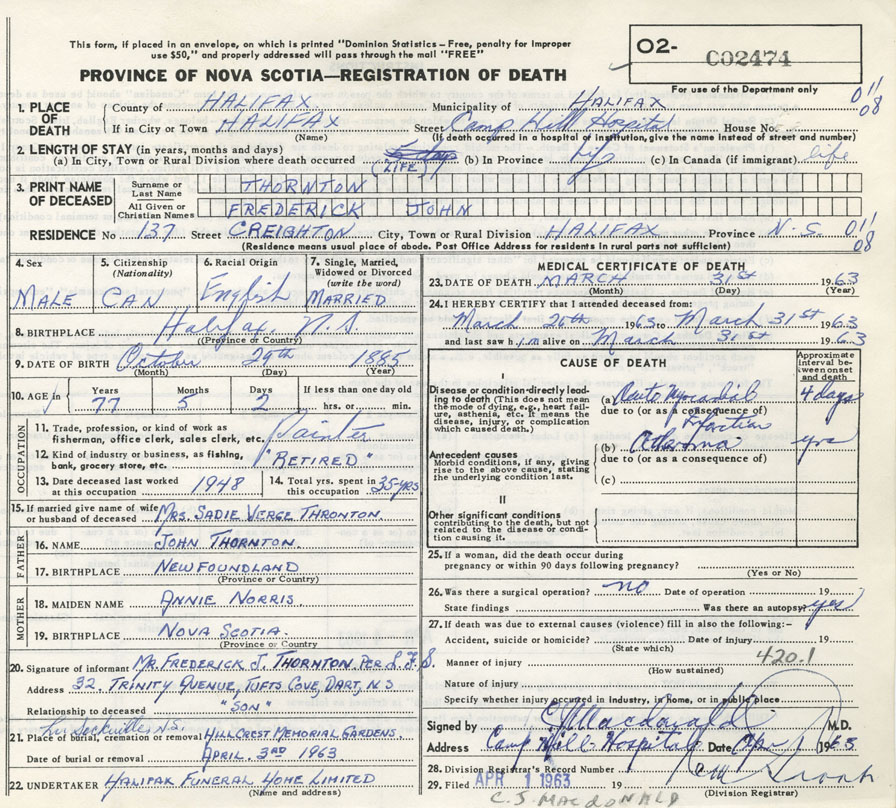 This form, if placed in an envelope, on which is printed "Dominion Statistics – Free, penalty for improper
use $50," and properly addressed will pass through the mail "FREE"
PROVINCE OF NOVA SCOTIA—REGISTRATION OF DEATH
O2- C02474
For use of the Department only
011
08
1. PLACE OF DEATH
County of HALIFAX Municipality of HALIFAX
If in City or Town HALIFAX Street Camp Hill Hospital House No.
(Name) (If death occurred in a hospital of institution, give the name instead of street and number)
2. LENGTH OF STAY (in years, months and days)
(a) In City, Town or Rural Division where death occurred (LIFE) (b) In Province life (c) In Canada (if immigrant) life
3. PRINT NAME OF DECEASED
Surname or Last Name THORNTON
All Given or Christian Names FREDERICK JOHN
RESIDENCE No 137 Street CREIGHTON City, Town or Rural Division HALIFAX Province N.S. 011
08
(Residence means usual place of abode. Post Office Address for residents in rural parts not sufficient)
4. Sex MALE
5. Citizenship (Nationality) CAN
6. Racial Origin English
7. Single, Married, Widowed or Divorced (write the word) MARRIED
8. BIRTHPLACE Halifax, N.S.
(Province or Country)
9. DATE OF BIRTH October 29th 1885
(Month) (Day) (Year)
10. AGE in Years 77 Months 5 Days 2 If less than one day old hrs. or min.
OCCUPATION
11. Trade, profession, or kind of work as fisherman, office clerk, sales clerk, etc. Painter
12. Kind of industry or business, as fishing, bank, grocery store, etc. "RETIRED"
13. Date deceased last worked at this occupation 1948
14. Total yrs. spent in this occupation 35-yrs
15. If married give name of wife or husband of deceased MRS. SADIE VERGE THRONTON.
FATHER
16. NAME JOHN THORNTON.
17. BIRTHPLACE NEWFOUNDLAND
(Province or Country)
MOTHER
18. MAIDEN NAME ANNIE NORRIS.
19. BIRTHPLACE NOVA SCOTIA.
(Province or Country
20. Signature of informant MR. FREDERICK J. THORNTON PER L.F.S.
Address 32 TRINITY AVENUE, TUFTS COVE, DART, N.S
Relationship to deceased "SON"
Sackville N.S.
21. Place of burial, cremation or removal HILLCREST MEMORIAL GARDENS.
Date of burial or removal APRIL. 3RD 1963
22. UNDERTAKER HALIFAX FUNERAL HOME LIMITED
(Name and address)
MEDICAL CERTIFICATE OF DEATH
23. DATE OF DEATH MARCH 31st 1963
(Month) (Day) (Year)
24. I HEREBY CERTIFY that I attended deceased from:
March 26th 1963 to March 31st 1963
and last saw him alive on March 31st 1963
CAUSE OF DEATH
Approximate interval between onset and death
I
Disease or condition directly leading to death (This does not mean the mode of dying, e.g., heart failure, asthenia, etc. It means the disease, injury, or complication which caused death.)
(a) Acute Myocardial Infarction 4 days
due to (or as a consequence of)
Antecedent causes
Morbid conditions, if any, giving rise to the above cause, stating the underlying condition last.
(b) Atheroma yrs
due to (or as a consequence of)
(c)
II
Other significant conditions
contributing to the death, but not related to the disease or condition causing it.
25. If a woman, did the death occur during
pregnancy or within 90 days following pregnancy?
(Yes or No)
26. Was there a surgical operation? no Date of operation 19
State findings Was there an autopsy yes
27. If death was due to external causes (violence) fill in also the following:–
Accident, suicide or homicide? Date of injury 19
(State which)
Manner of injury 420.1
(How sustained)
Nature of injury
Specify whether injury occurred in Industry, in Home, or in public place
Signed by CJ Macdonald M.D.
Address Camp Hill Hospital Date Apr 1 1963
28. Division Registrar's Record Number
29. Filed APR 1 1963 19
(Division Registrar)
C. J. MACDONALD